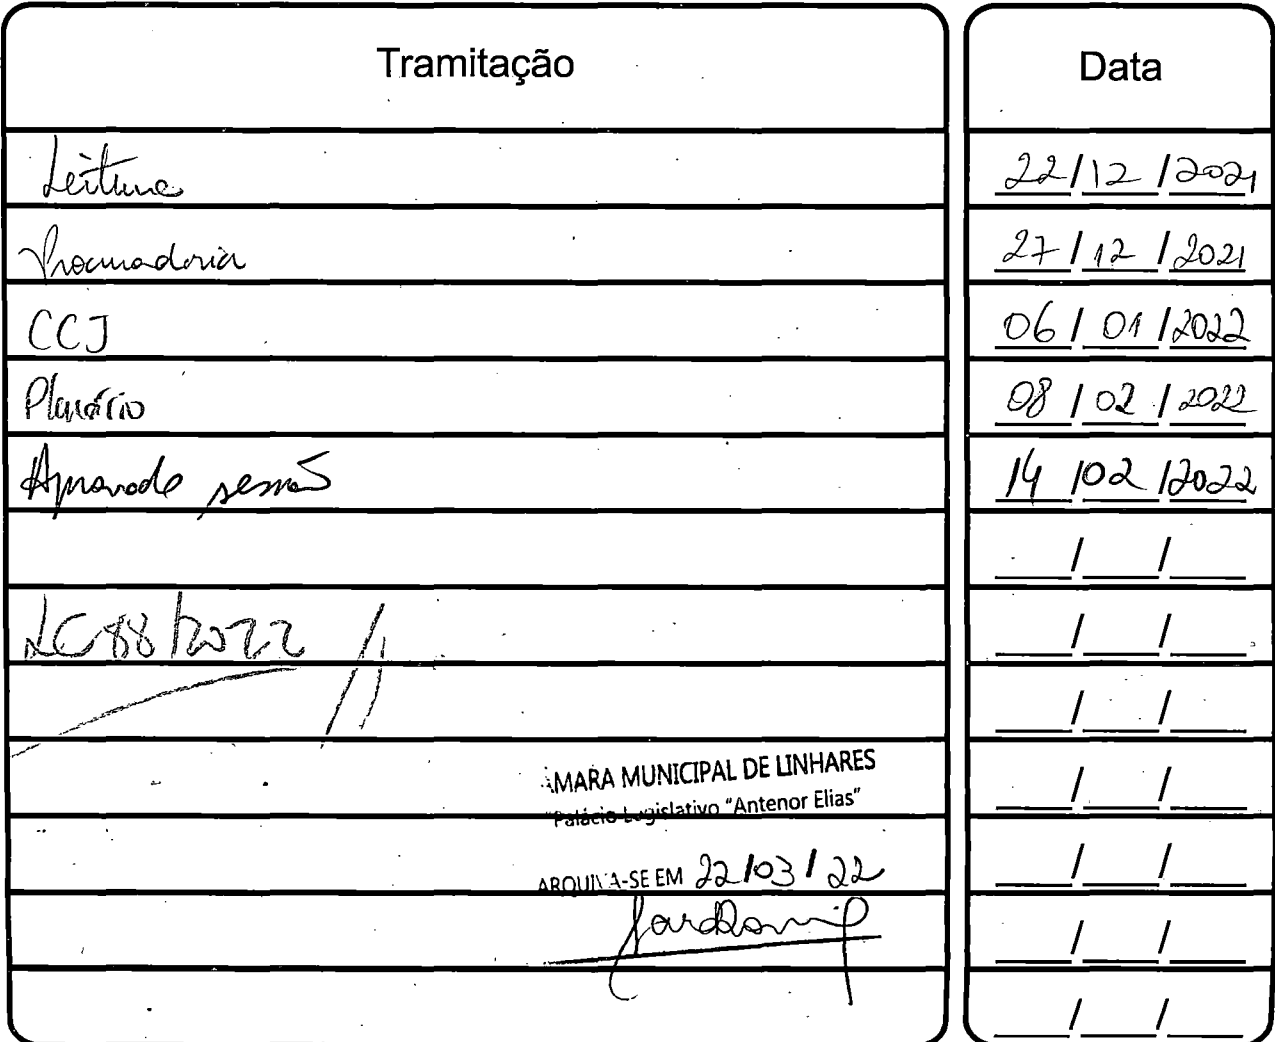 Tramitação Data
Leitura 22/12/2021
Procuradoria 27/12/2021
CCJ 06/01/2022
Plenário 08/02/2022
Aprovado sessão 14/02/2022
/ /
LC 88/2022 / /
/ /
AMARA MUNICIPAL DE LINHARES / /
"Palácio Legislativo "Antenor Elias"
ARQUIVA-SE EM 22/03/22 / /
/ /
/ /